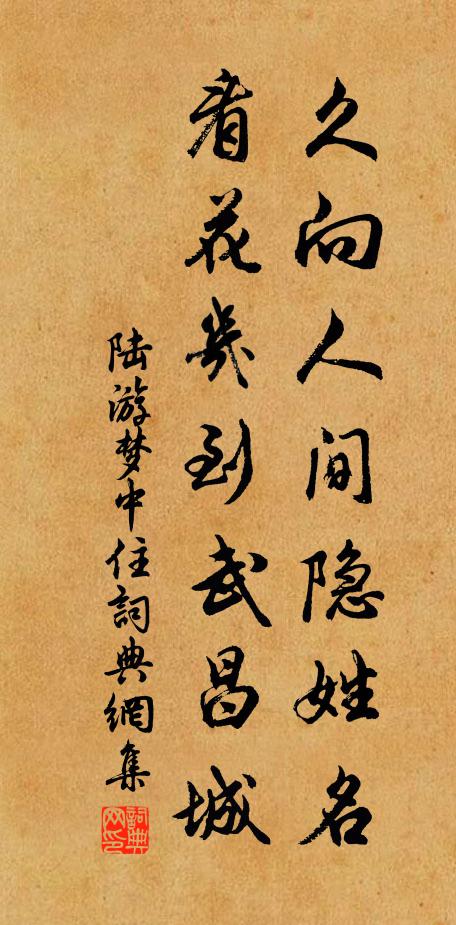 久向人间隐姓名
看花几到武昌城
陆游梦中住詞典網集
詞典网印